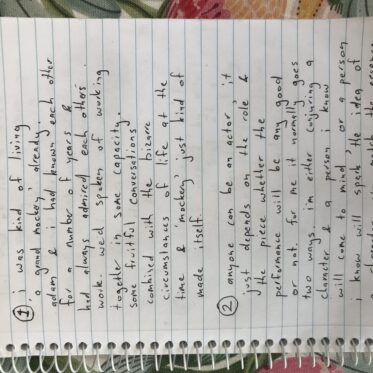 ① i was kind of living
'a grand mockery' already.
adam & i had known each other
for a number of years &
had always admired each others
work. we'd spoken of working
together in some capacity.
some fruitful conversations
combined with the bizarre
circumstances of life at the
time & 'mockery' just kind of
made itself.
② anyone can be an actor, it
just depends on the role &
the piece whether the
performance will be any good
or not. for me it normally goes
two ways. i'm either conjuring a
character & a person i know
will come to mind, or a person
i know will spark the idea of